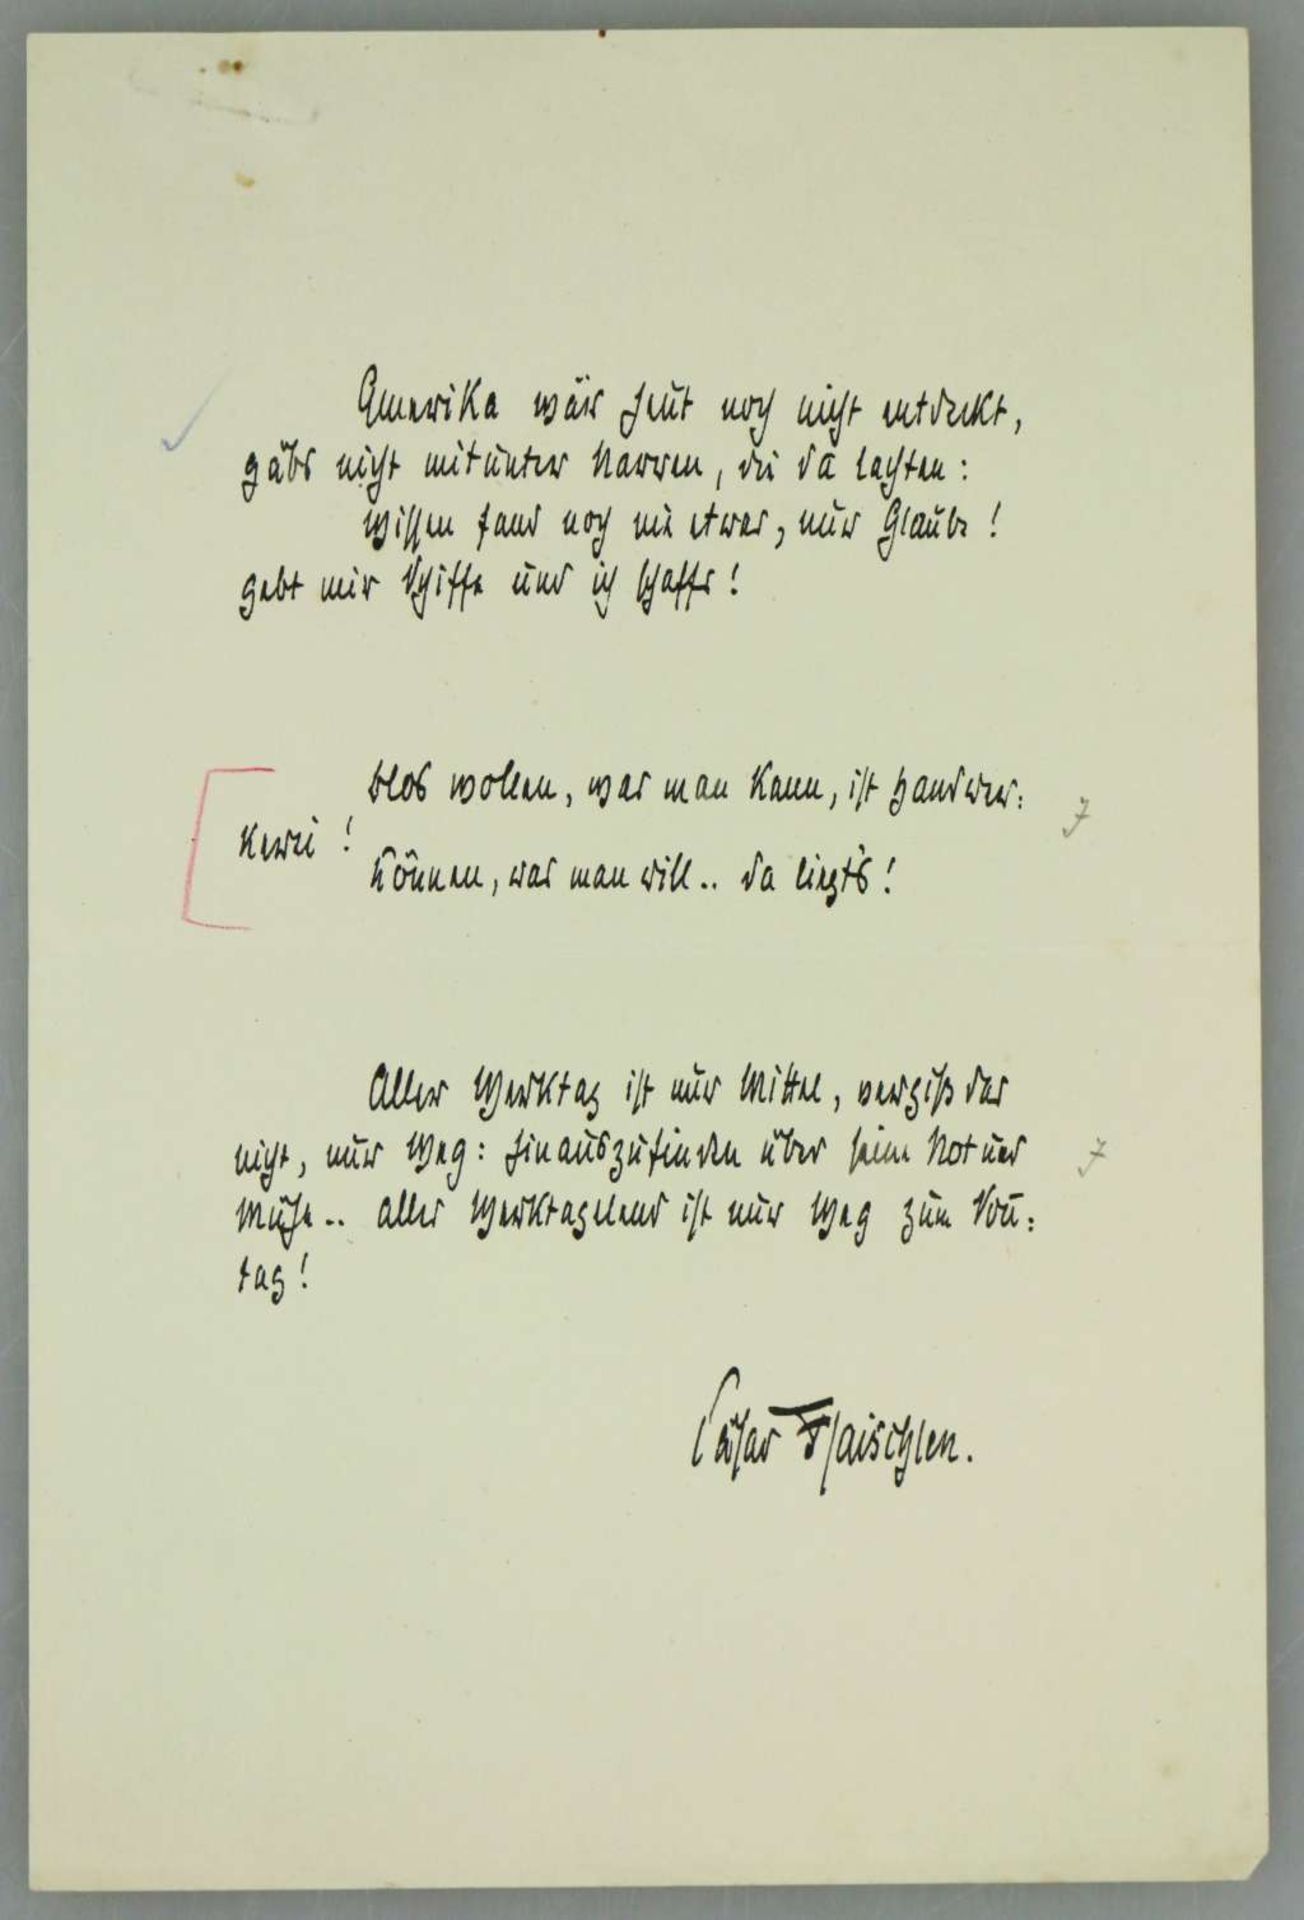 Amerika wär heut noch nicht entdeckt,
gäbs nicht mitunter Narren, die da lachten:
Wissen fand noch nie etwas, nur Glaube!
gebt mir Schiffe und ich schaffs!
blos wollen, was man kann, ist Handwer:
kerei!
Können, was man will.. da liegt's!
Aller Werktag ist nur Mittel, vergiß das
nicht, nur Weg: hinauszufinden über seine Not und
Mühe.. alles Werktagelend ist nur Weg zum Son:
tag!
Cäsar Flaischlen.